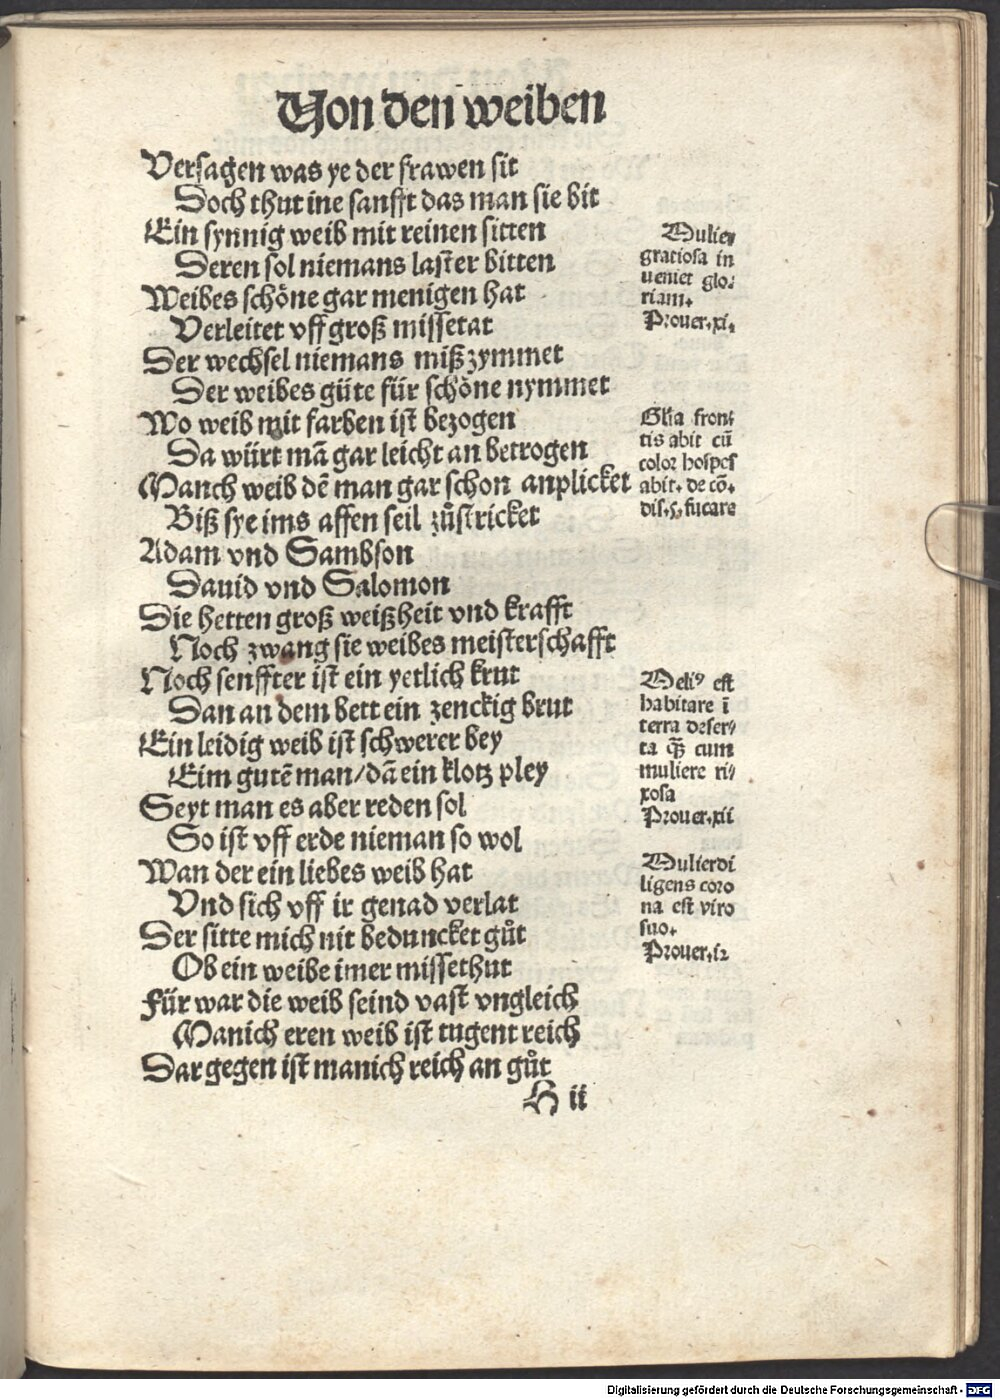 Von den weiben
Versagen was ye der frawen sit
Doch thut ine sanfft das man sie bit
Ein synnig weib mit reinen sitten
Deren sol niemans laster bitten
Weibes schöne gar menigen hat
Verleitet vff groß missetat
Der wechsel niemans mißzymmet
Der weibes güte für schöne nymmet
Wo weib mit farben ist bezogen
Da würt mã gar leicht an betrogen
Manch weib dē man gar schon anplicket
Biß sye ims affen seil zůstricket
Adam vnd Sambson
Dauid vnd Salomon
Die hetten groß weißheit vnd krafft
Noch zwang sie weibes meisterschafft
Noch senffter ist ein yetlich krut
Dan an dem bett ein zenckig brut
Ein leidig weib ist schwerer bey
Eim gutē man/dã ein klotz pley
Seyt man es aber reden sol
So ist vff erde nieman so wol
Wan der ein liebes weib hat
Vnd sich vff ir genad verlat
Der sitte mich nit beduncket gůt
Ob ein weibe imer missethut
Für war die weib seind vast vngleich
Manich eren weib ist tugent reich
Dar gegen ist manich reich an gůt
H ii
Mulier
gratiosa in
ueniet glo⸗
riam.
Prouer.xi.
Glīa fron⸗
tis abit cū
color hospes
abit. de cō.
dis.5. fucare
Meliꝰ est
habitare ī
terra deser⸗
ta q̄ȝ cum
muliere ri⸗
xosa
Prouer.xii
Mulier di
ligens coro
na est viro
suo.
Prouer.
Digitalisierung gefördert durch die Deutsche Forschungsgemeinschaft - DFG